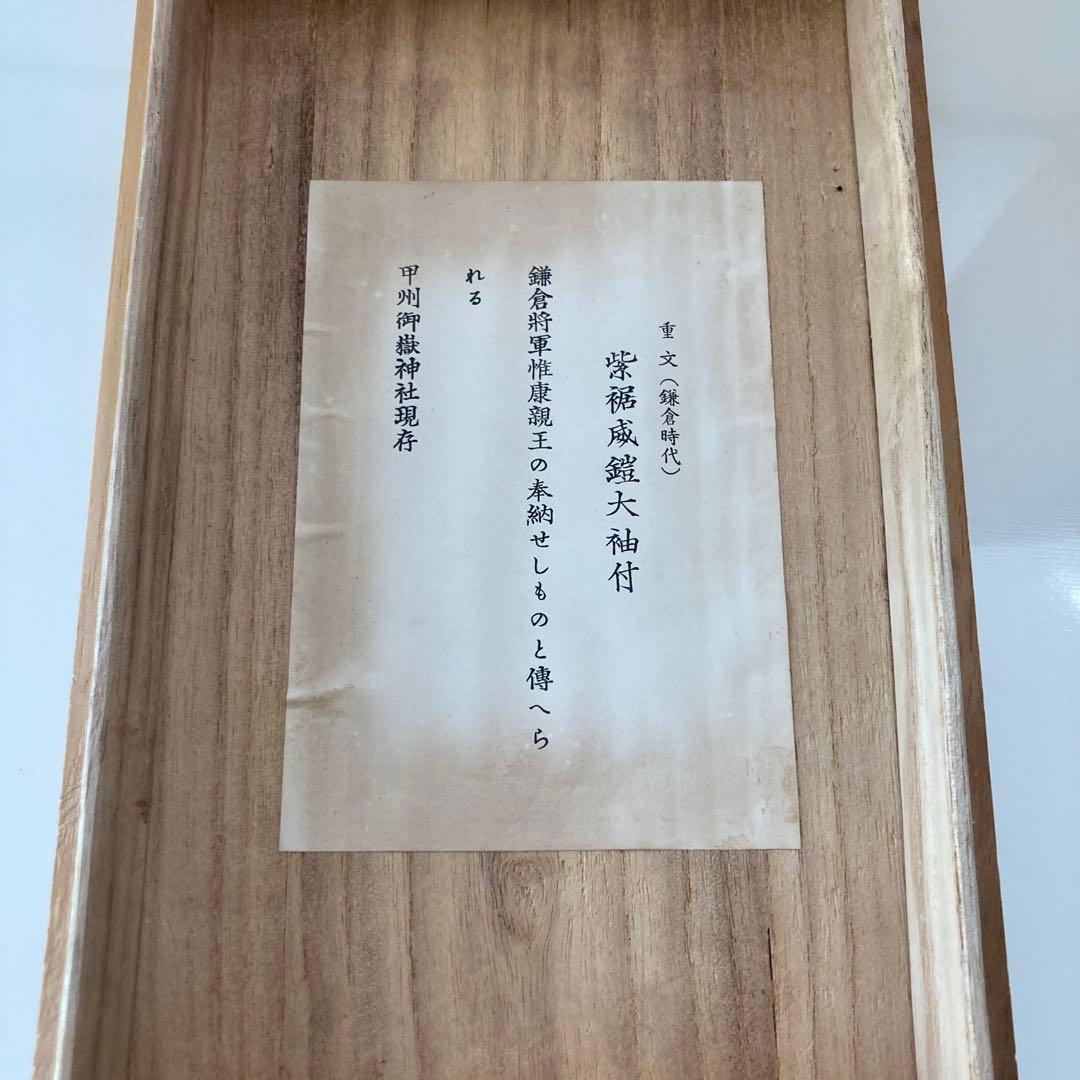 重文（鎌倉時代）
紫裾威鎧大袖付
鎌倉將軍惟康親王の奉納せしものと傳へら
れる
甲州御嶽神社現存